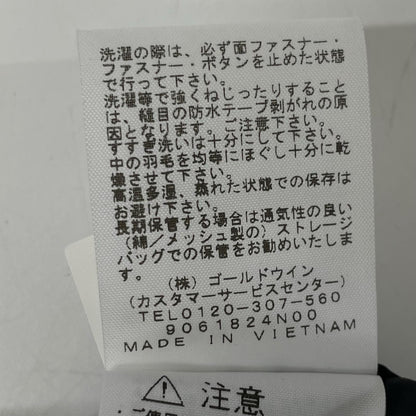 洗濯の際は、必ず面ファスナー・
ファスナー・ボタンを止めた状態
で行って下さい。
洗濯等で強くねじったりすること
は、縫目の防水テープ剥がれの原
因となります。ご注意下さい。
すすぎ洗いは十分にして下さい。
中の羽毛を均等にほぐし十分に乾
燥させて下さい。
高温多湿、蒸れた状態での保存は
お避け下さい。
長期保管する場合は通気性の良い
(綿/メッシュ製の)ストレージ
バッグでの保管をお勧めいたしま
す。
(株)ゴールドウイン
(カスタマーサービスセンター)
TEL0120-307-560
9061824N00
MADE IN VIETNAM
注意